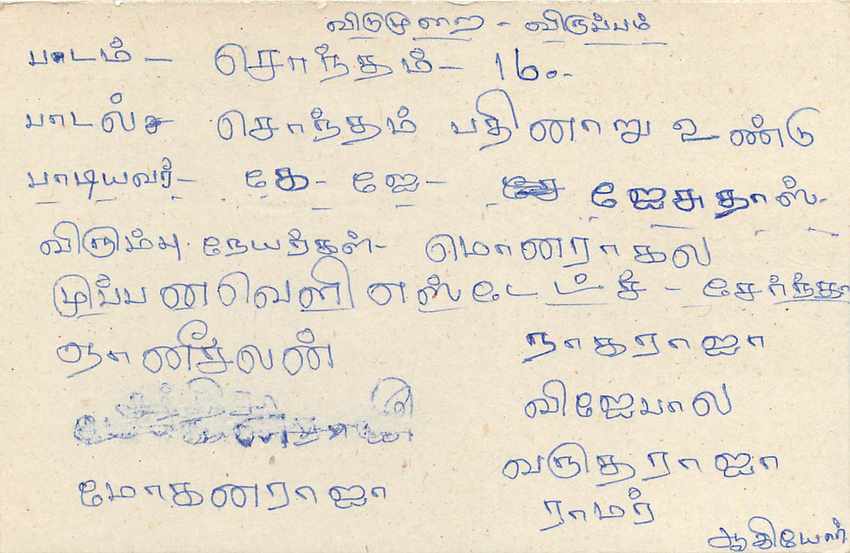 விடுமுறை - விருப்பம்
பாடம் - சொந்தம் - 16.-
பாடல்ச சொந்தம் பதினாறு உண்டு
பாடியவர் - கே - ஜே - ஜேசுதாஸ்.
விரும்பு நேயர்கள் - மொனராகல
முப்பனவெளி எஸ்டேட்ச் - சேர்ந்த
நாகராஜா
விஜேபால
மோகனராஜா
வருதராஜா
ராமர்
ஆகியோர்